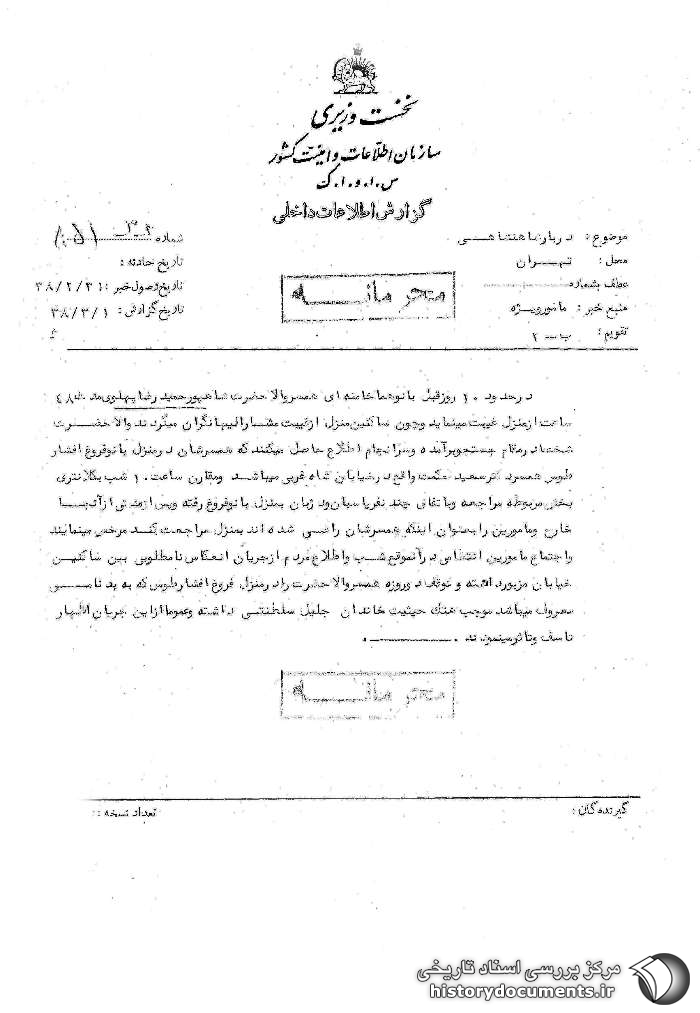 نخست وزیری
سازمان اطلاعات و امنیت کشور
س.ا.و.ا.ک
گزارش اطلاعات داخلی
موضوع : دربار شاهنشاهی
محل : تهران
عطف بشماره
منبع خبر : مامور ویژه
تقویم : ب - ۲
شماره
تاریخ حادثه :
تاریخ وصول خبر : ۳۸/۲/۳۱
تاریخ گزارش : ۳۸/۳/۱
محرمانه
در حدود ۱۰ روز قبل بانو هما خامنه ای همسر والاحضرت شاهپور حمید رضا پهلوی مدت ۴۸
ساعت از منزل غیبت مینماید و چون ساکنین منزل از غیبت مشارالیها نگران میگردند والاحضرت
شخصا در مقام جستجو برآمده و سرانجام اطلاع حاصل میکنند که همسرشان در منزل بانو فروغ افشار
طوس همسر دکتر سعید حکمت واقع در خیابان شاه غربی میباشد و مقارن ساعت ۱۰ شب بکلانتری
بخش مربوطه مراجعه و باتفاق چند نفر پاسبان ود ژبان بمنزل بانو فروغ رفته و پس از مدتی از آنجا
خارج و مامورین را بعنوان اینکه همسرشان راضی شده اند بمنزل مراجعت کنند مرخص مینمایند
و اجتماع مامورین انتظامی در آنموقع شب و اطلاع مردم از جریان انعکاس نامطلوبی بین ساکنین
خیابان مزبور داشته و توقف دو روزه همسر والاحضرت را در منزل فروغ افشار طوس که به بدنامی
معروف میباشد موجب هتک حیثیت خاندان جلیل سلطنتی دانسته و عموما از این جریان اظهار
تاسف و تاثر مینمودند .
محرمانه
گیرندگان :
تعداد نسخه :
مرکز بررسی اسناد تاریخی
historydocuments.ir